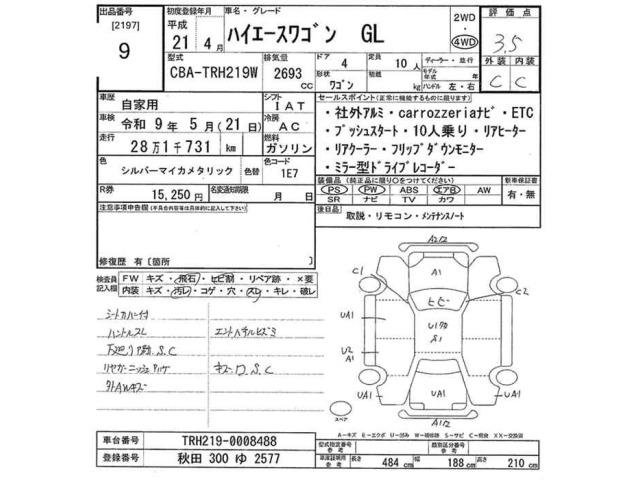 出品番号
[2197]
9
初度登録年月
平成
21年 4月
車名・グレード
ハイエースワゴン GL
2WD
4WD
評価点
3.5
型式
CBA-TRH219W
排気量
2693 cc
ドア
4
形状
ワゴン
定員
10人
積載
kg
ディーラー・並行
モデル年式 年
ハンドル 左・右
外装
C
内装
C
車歴
自家用
シフト
IAT
車検
令和 9年 5月(21日)
冷房
AC
走行
28万1千731 km
燃料
ガソリン
色
シルバーマイカメタリック
色替
色コード
1E7
R券
15,250円
名変通知期限
月 日
セールスポイント(正常に機能するものに限ります)
・社外アルミ・carrozzeriaナビ・ETC
・プッシュスタート・10人乗り・リアヒーター
・リアクーラー・フリップダウンモニター
・ミラー型ドライブレコーダー
装備品(純正品に限り○をつけてください)
PS PW ABS エアB AW
SR ナビ TV カワ
新車保証書
有・無
後日品
取説・リモコン・メンテナンスノート
注意事項申告欄(不具合内容等は具体的に記入して下さい)
修復歴 有〔箇所 〕
検査員記入欄
FW キズ・飛石・ヒビ割・リペア跡・×要
内装 キズ・汚レ・コゲ・穴・スレ・キレ・破レ
シートカバー付
ハンドルスレ
下廻り S.C
外AWキズ
S.C
A1/2
A1
C1
C2
ヒビ
UA1
UA1
U2
A1
UA1
UA1
UA1
A1/2
スペア
A-キズ E-エクボ U-凹み W-補修跡 S-サビ C-腐食 XX-交換済
車台番号
TRH219-0008488
登録番号
秋田 300 ゆ 2577
型式指定番号
参考
類別区分番号
参考
車庫証明用
参考
長さ
484 cm
幅
188 cm
高さ
210 cm